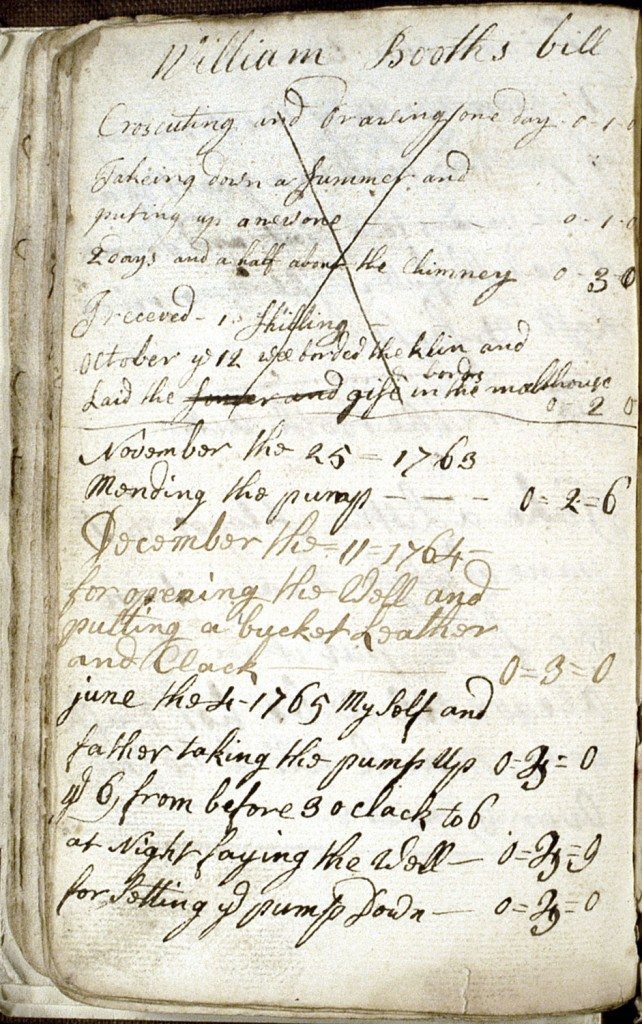 William Booths bill
Croscuting and Drawing one day 0-1-0
Takeing down a Summer and
puting up anewone - - - 0-1-0
2 days and a half about the Chimney 0-3-0
I receved - 1s Shilling -
October ye 12 wee borded the kiln and
bords
Laid the Somer and gise in the malthouse
0 2 0
November the 25 = 1763
Mending the pump - - - 0=2=6
December the = 11 = 1764 =
for opening the Well and
putting a bucket Leather
and Clack 0=3=0
june the 4-1765 My Self and
father taking the pump Up 0=3=0
ye 6, from before 3 o clack to 6
at Night Laying the Well - 0=3=9
for Setting ye pump Down - 0=3=0